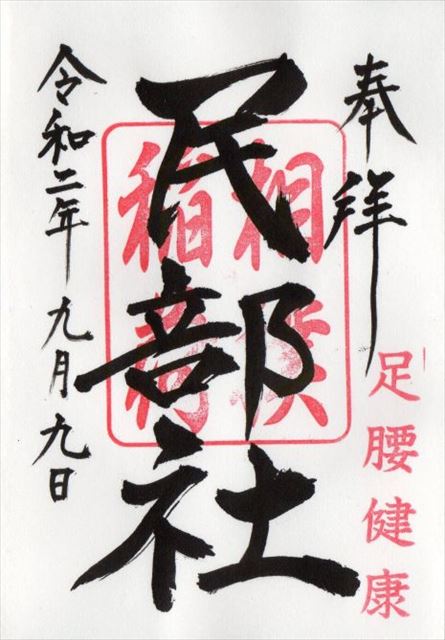 奉拝
足腰健康
民部社
相撲
稲荷
令和二年九月九日